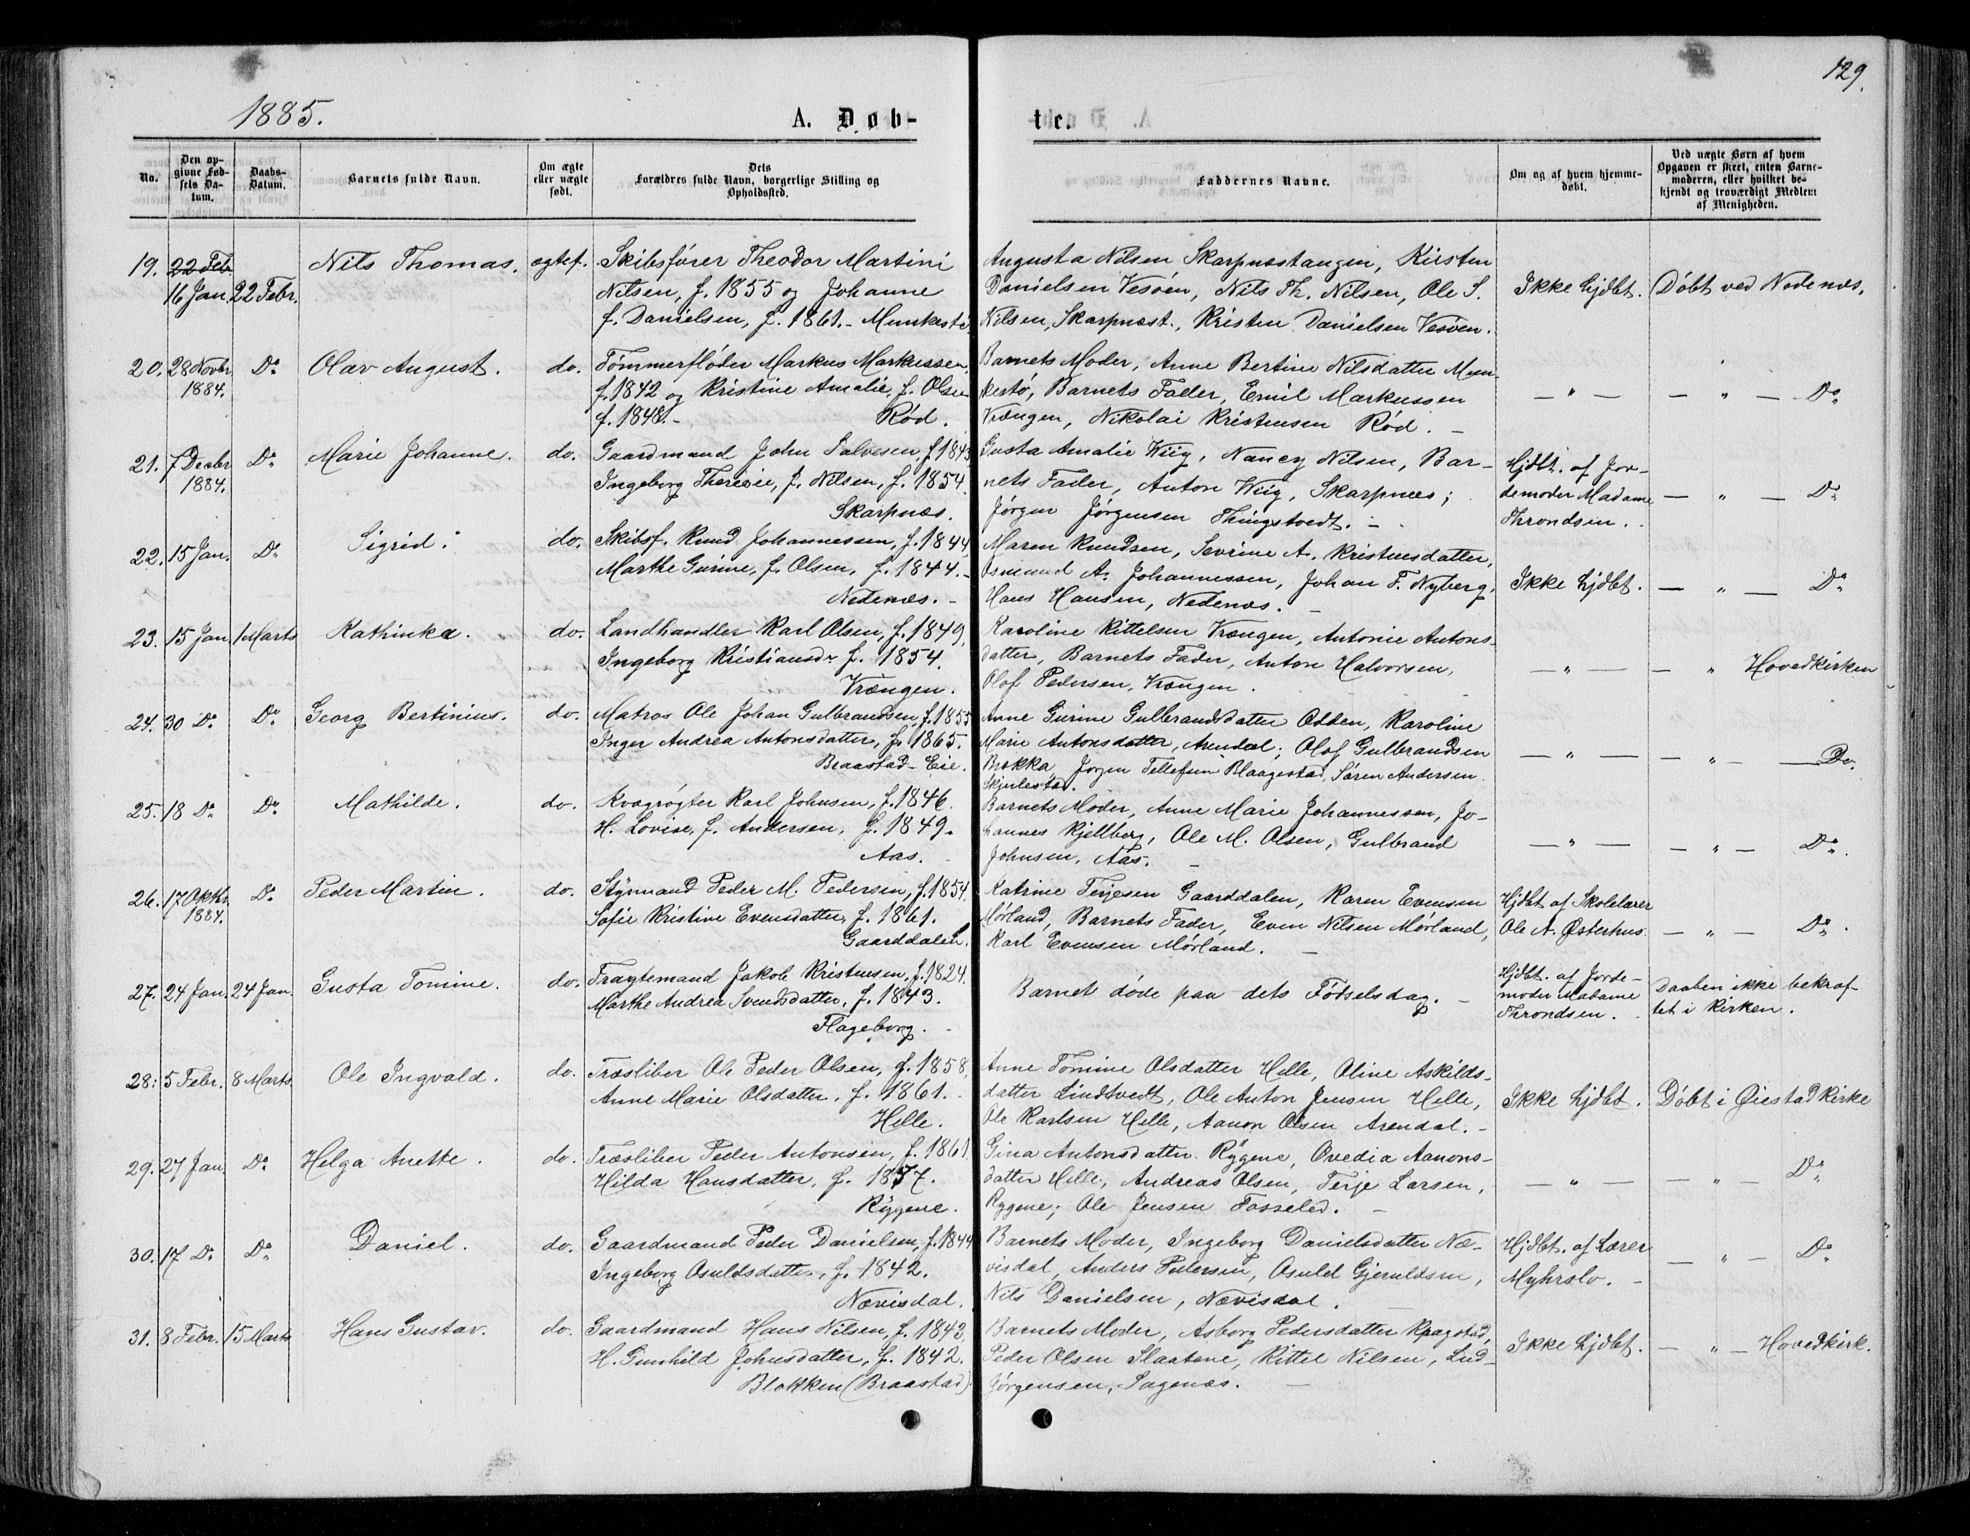 129.
1885.
A. Døb-
te.
No.
Den op-
givne Fød-
sels Da-
tum.
Daabs-
Datum.
Barnets fulde Navn.
Om ægte
eller uægte
født.
Dets
Forældres fulde Navn, borgerlige Stilling og
Opholdssted.
Faddernes Navne.
Om og af hvem hjemme-
døbt.
Ved uægte Børn af hvem
Opgaven er skeet, enten Barne-
moderen, eller hvilket be-
kjendt og troværdigt Medlem
af Menigheden.
19. 22 Feb 16 Jan. 22 Febr. Nils Thomas. ægtef.
Skibsfører Theodor Martini
Nilsen, f. 1855 og Johanne
f. Danielsen, f. 1861. - Munkestø
Augusta Nilsen Skarpnæstangen, Kirsten
Danielsen Vesøen, Nils Th. Nilsen, Ole S.
Nilsen, Skarpnæst., Kristen Danielsen Vesøen.
Ikke hjdbt. Døbt ved Nedenæs.
20. 28 Novbr 1884. Do Olav August. do.
Tømmerfløder Markus Markussen,
f. 1842 og Kristine Amalie, f. Olsen
f. 1848. - Rød.
Barnets Moder, Anne Bertine Nilsdatter Mun-
kestø, Barnets Fader, Emil Markussen
Vrængen, Nikolai Kristensen Rød. -
— " — — " — Do
21. 7 Decbr 1884. Do Marie Johanne. do.
Gaardmand John Salvesen, f. 1843
Ingeborg Theresie, f. Nilsen, f. 1854.
Skarpnæs.
Gusta Amalie Wiig, Nancy Nilsen, Bar-
nets Fader, Anton Wiig, Skarpnæs;
Jørgen Jørgensen Thingstvedt. -
Hjdbt. af Jor-
demoder Madame
Throndsen.
— " — Do
22. 15 Jan. Do Sigrid. do.
Skibsf. Knud Johannessen, f. 1844,
Marthe Gurine, f. Olsen, f. 1844. -
Nedenæs. -
Maren Knudsen, Sevrine A. Kristensdatter,
Osmund A. Johannessen, Johan F. Nyberg,
Hans Hansen, Nedenæs. -
Ikke hjdbt. — " — Do
23. 15 Jan 1 Marts Kathinka. do.
Landhandler Karl Olsen, f. 1849,
Ingeborg Kristiansdr f. 1854.
Vrængen.
Karoline Kittelsen Vrængen, Antonie Antons-
datter, Barnets Fader, Anton Halvorsen,
Olof Pedersen, Vrængen.
— " — — " Hovedkirken
24. 30 Do Do Georg Bertinius. do.
Matros Ole Johan Gulbrandsen, f. 1855
Inger Andrea Antonsdatter, f. 1865.
Braastad-Eie.
Anne Gurine Gulbrandsdatter Odden, Karoline
Marie Antonsdatter, Arendal; Olof Gulbrandsen
Brekka, Jørgen Tellefsen Blaagestad, Søren Andersen
Skjulestad.
— " — — " — Do.
25. 18 Do Do Mathilde. do.
Kvægrøgter Karl Johnsen, f. 1846.
H. Lovise, f. Andersen, f. 1849.
Aas.
Barnets Moder, Anne Marie Johannessen, Jo-
hannes Kjellberg, Ole M. Olsen, Gulbrand
Johnsen, Aas. -
— " — — " — Do.
26. 17 Oktbr. 1884. Do Peder Martin. do.
Styrmand Peder M. Pedersen, f. 1854,
Sofie Kristine Evensdatter, f. 1861.
Gaarddalen.
Katrine Terjesen Gaarddalen, Karen Evensen
Mørland, Barnets Fader, Even Nilsen Mørland,
Karl Evensen Mørland. -
Hjdbt af Skolelærer
Ole N. Østerhus.
— " — Do.
27. 24 Jan. 24 Jan. Gusta Tomine. do.
Fragtemand Jakob Kristensen, f. 1824,
Marthe Andrea Svendsdatter, f. 1843.
Flageborg. -
Barnet døde paa dets Fødselsdag. -
Hjdbt. af Jorde-
moder Madame
Throndsen.
Daaben ikke bekræf-
tet i Kirken.
28. 5 Febr. 8 Marts. Ole Ingvald. do.
Træsliber Ole Peder Olsen, f. 1858,
Anne Marie Olsdatter, f. 1861.
Helle.
Anne Tomine Olsdatter Helle, Oline Askilds-
datter Lindtvedt, Ole Anton Jensen Helle,
Ole Karlsen Helle, Aanon Olsen Arendal. -
Ikke hjdbt. Døbt i Øiestad Kirke
29. 27 Jan Do Helga Anette. do.
Træsliber Peder Antonsen, f. 1861
Hilda Hansdatter, f. 1857.
Rygene.
Gina Antonsdatter Rygene, Ovedia Aanons-
datter Helle, Andreas Olsen, Terje Larsen,
Rygene; Ole Jensen Fosseled. -
— " — — " — Do
30. 17 Do Do Daniel. do.
Gaardmand Peder Danielsen, f. 1844
Ingeborg Osuldsdatter, f. 1842.
Nævisdal.
Barnets Moder, Ingeborg Danielsdatter Næ-
visdal, Anders Pedersen, Osuld Gjeruldsen,
Nils Danielsen, Nævisdal.
Hjdbt. af Lærer
Myhrslo. -
— " — Do
31. 8 Febr. 15 Marts Hans Gustav. do.
Gaardmand Hans Nilsen, f. 1843,
H. Gunhild Johnsdatter, f. 1842.
Blokken (Braastad).
Barnets Moder, Asborg Pedersdatter
Peder Olsen Slaatene, Kittel Nilsen, Lud-
Jørgensen, Sagenæs. -
Ikke hjdbt. — " — Hovedkirk.